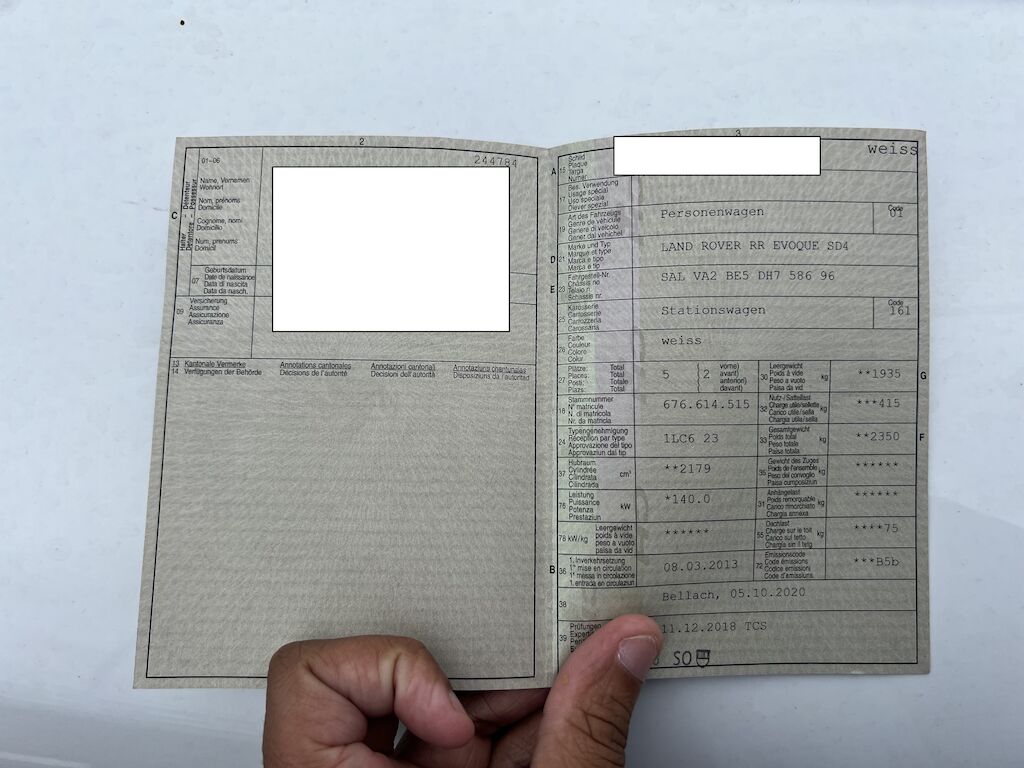 2
01-06
244784
C
Halter
Détenteur
Detentore
Possessur
Name, Vornamen
Wohnort
Nom, prénoms
Domicile
Cognome, nomi
Domicilio
Num, prenums
Domicil
07
Geburtsdatum
Date de naissance
Data di nascita
Data da nasch.
09
Versicherung
Assurance
Assicurazione
Assicuranza
13 Kantonale Vermerke
Annotations cantonales
Annotazioni cantonali
Annotaziuns chantunalas
14 Verfügungen der Behörde
Décisions de l'autorité
Decisioni dell'autorità
Disposiziuns da l'autoritad
3
A 15
Schild
Plaque
Targa
Numer
weiss
17
Bes. Verwendung
Usage spécial
Uso speciale
Diever spezial
19
Art des Fahrzeugs
Genre de véhicule
Genere di veicolo
Gener dal vehichel
Personenwagen
Code
01
D 21
Marke und Typ
Marque et type
Marca e tipo
Marca e tip
LAND ROVER RR EVOQUE SD4
E 23
Fahrgestell-Nr.
Châssis no
Telaio n.
Schassis nr.
SAL VA2 BE5 DH7 586 96
25
Karosserie
Carrosserie
Carrozzeria
Carossaria
Stationswagen
Code
161
26
Farbe
Couleur
Colore
Colur
weiss
27
Plätze: Total
Places: Total
Posti: Totale
Plazs: Total
5 ( 2 vorne)
avant)
anteriori)
davant)
30
Leergewicht
Poids à vide
Peso a vuoto
Paisa da vid
kg
**1935
G
18
Stammnummer
N° matricule
N. di matricola
Nr. da matricla
676.614.515
32
Nutz-/Sattellast
Charge utile/sellette
Carico utile/sella
Chargia utila/sella
kg
***415
24
Typengenehmigung
Réception par type
Approvazione del tipo
Approvaziun dal tip
1LC6 23
33
Gesamtgewicht
Poids total
Peso totale
Paisa totala
kg
**2350
F
37
Hubraum
Cylindrée
Cilindrata
Cilindrada
cm³
**2179
35
Gewicht des Zuges
Poids de l'ensemble
Peso del convoglio
Paisa cumposiziun
kg
******
76
Leistung
Puissance
Potenza
Prestaziun
kW
*140.0
31
Anhängelast
Poids remorquable
Carico rimorchiato
Chargia annexa
kg
******
78 kW/kg
Leergewicht
poids à vide
peso a vuoto
paisa da vid
******
55
Dachlast
Charge sur le toit
Carico sul tetto
Chargia sin il tetg
kg
****75
B 36
1. Inverkehrsetzung
1re mise en circulation
1a messa in circolazione
1. entrada en circulaziun
08.03.2013
72
Emissionscode
Code émissions
Codice emissioni
Code d'emissiuns
***B5b
38
Bellach, 05.10.2020
39
Prüfungen
11.12.2018 TCS
SO